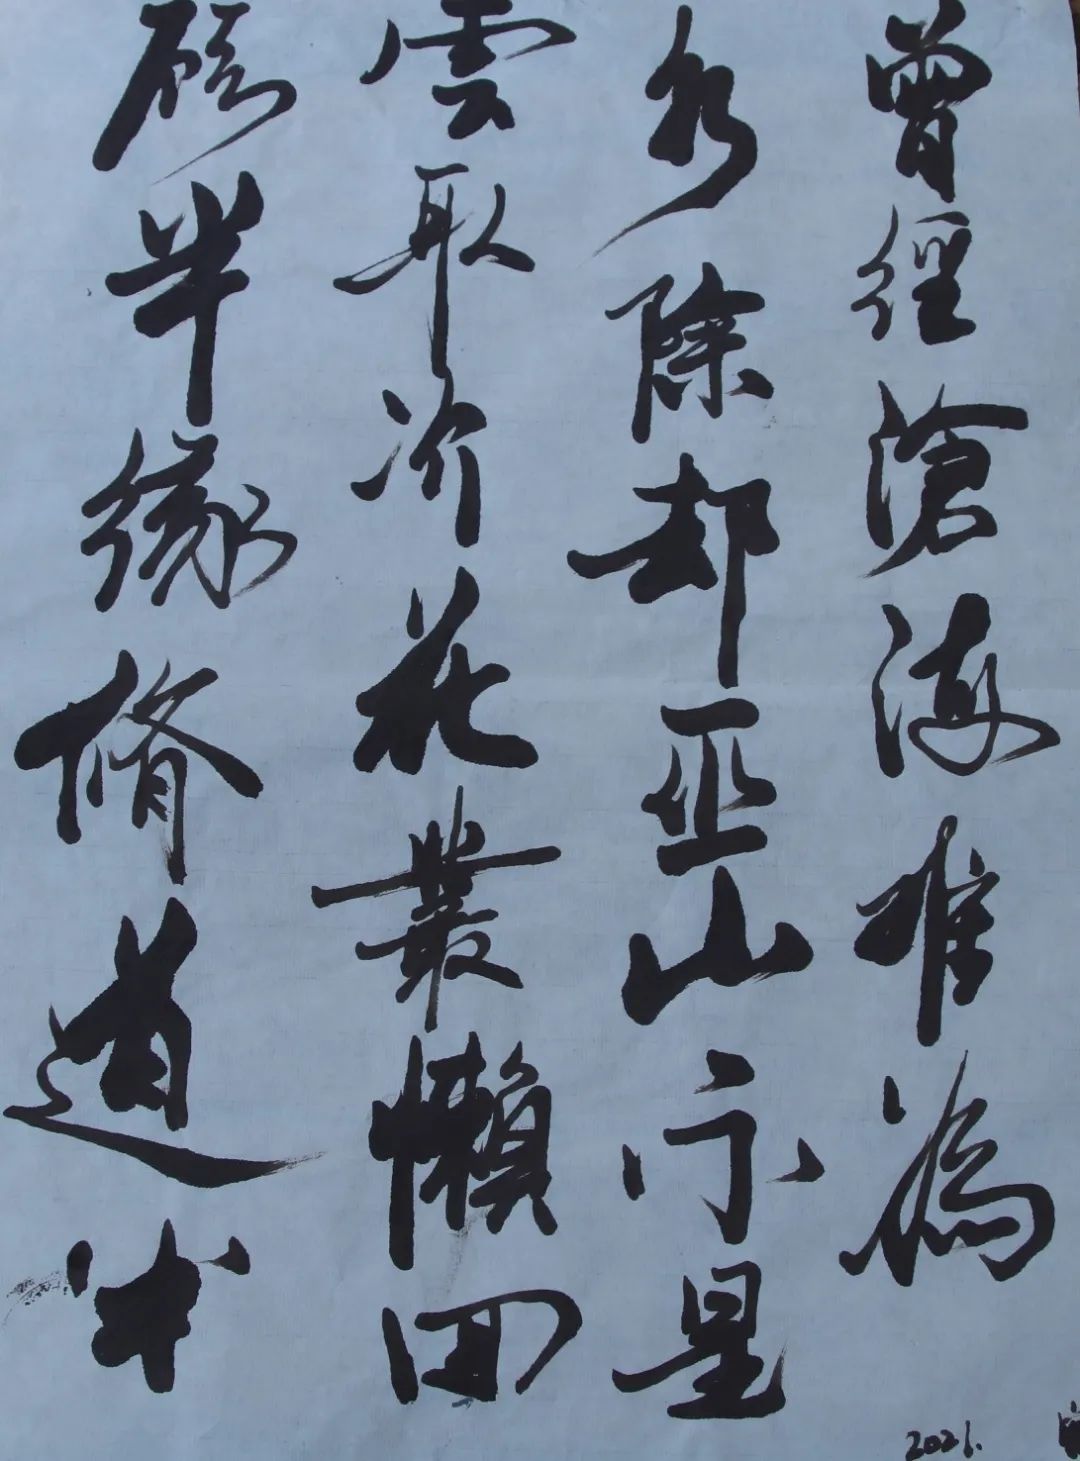 曾經滄海难為
水除却巫山亦是
雲取次花叢懶回
顧半緣脩道半
2021.